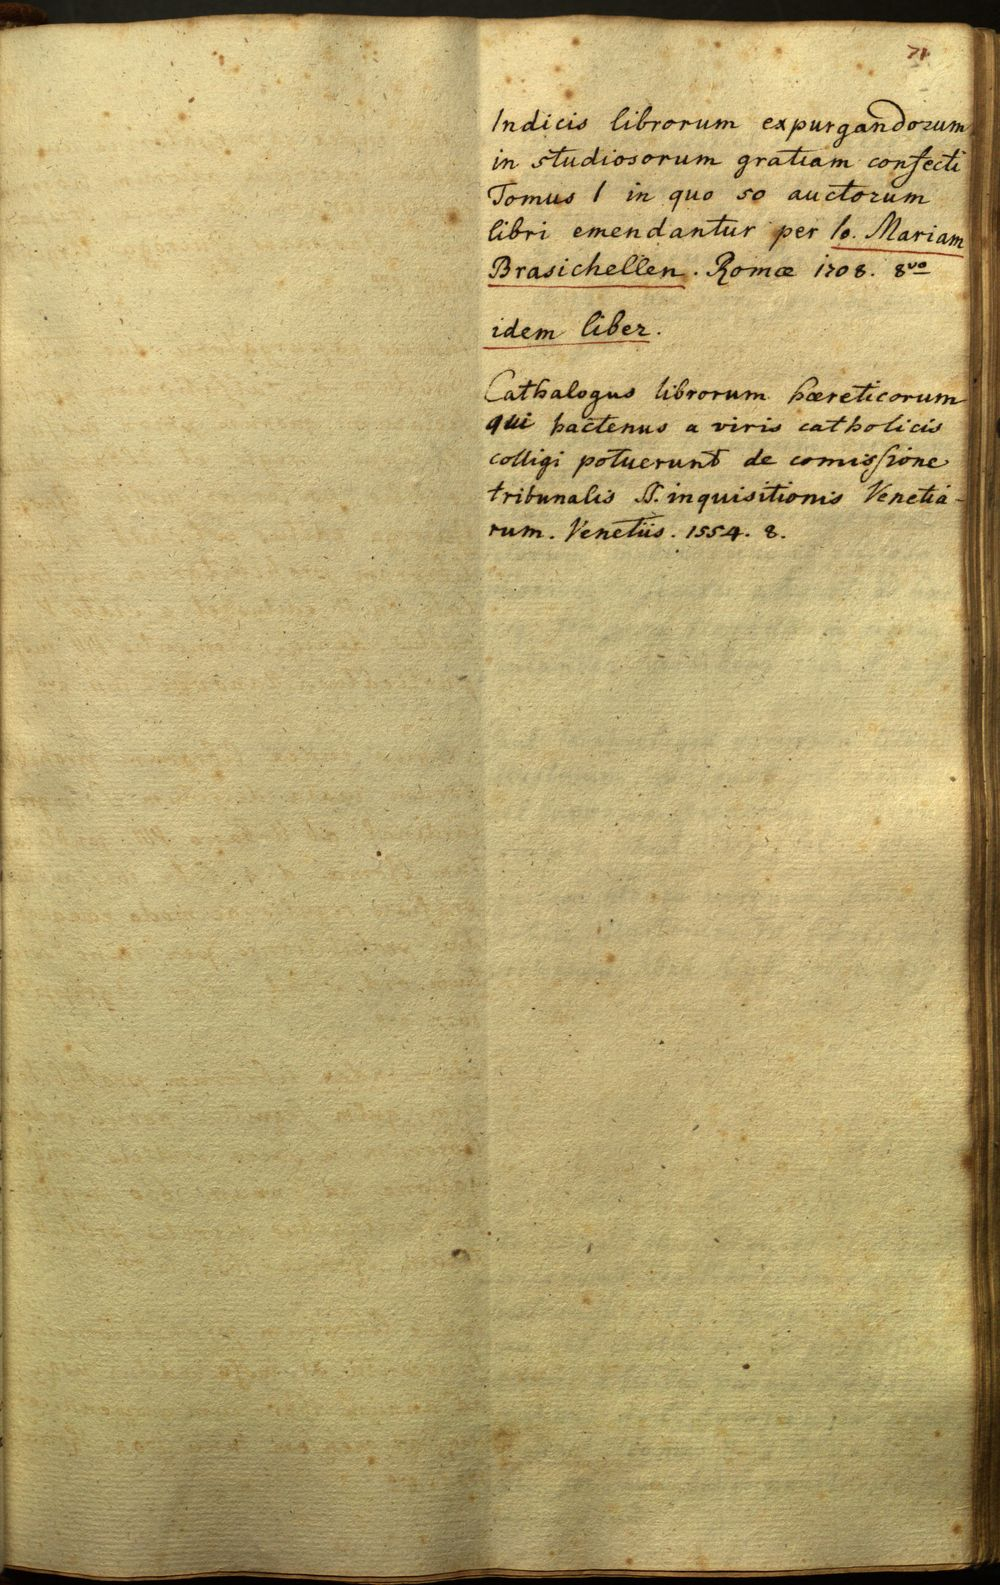 71.
Indicis librorum expurgandorum
in studiosorum gratiam confecti
Tomus I in quo 50 auctorum
libri emendantur per Io. Mariam
Brasichellen. Romæ 1708. 8vo
idem liber.
Cathalogus librorum hæreticorum
qui hactenus a viris catholicis
colligi potuerunt de comissione
tribunalis S. inquisitionis Venetia-
rum. Venetiis. 1554. 8.